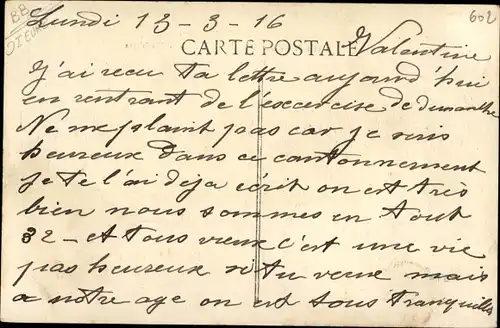 Lundi 13-3-16
602
CARTE POSTALE
Valentine
J'ai recu ta lettre aujourd hui
en rentrant de l'exercise de dimanche
Ne me plaint pas car je suis
heureux dans ce cantonnement
je te l'ai deja ecrit on est très
bien nous sommes en tout
32 - et tous vieux c'est une vie
pas heureux si tu veux mais
a notre age on est tous tranquilles